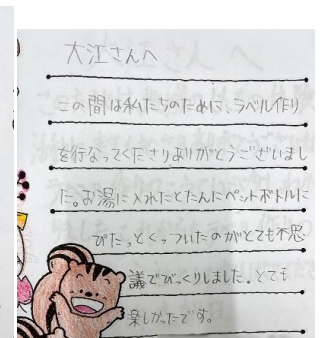 大江さんへ
この間は私たちのために、ラベル作り
を行なってくださりありがとうございまし
た。お湯に入れたとたんにペットボトルに
ぴたっとくっついたのがとても不思
議でびっくりしました。とても
楽しかったです。